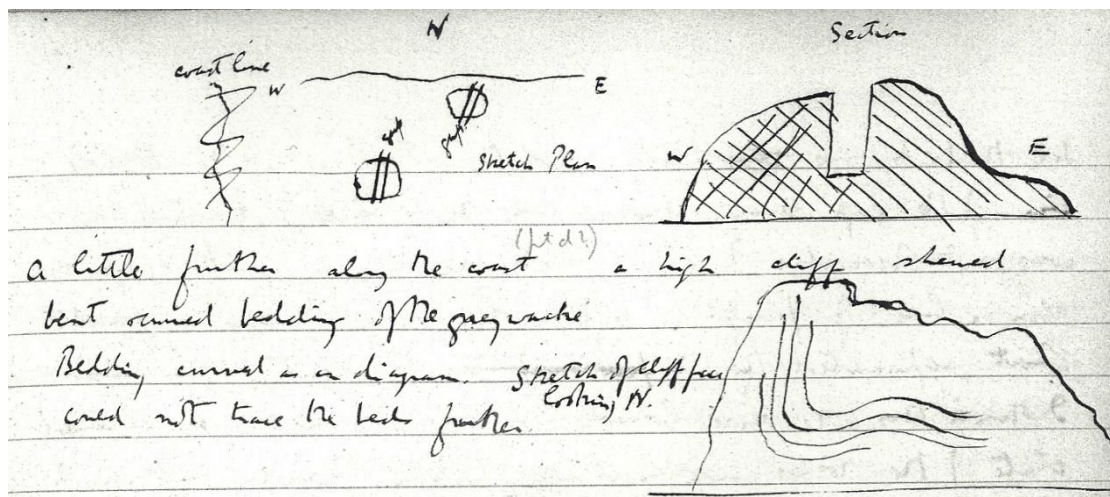 N
Section
coast line
W
E
gap
gap
Sketch Plan
W
E
(pt d2)
A little further along the coast a high cliff shewed
bent round bedding of the greywacke
Bedding curved as in diagram. Sketch of cliff face
looking N.
could not trace the beds further.